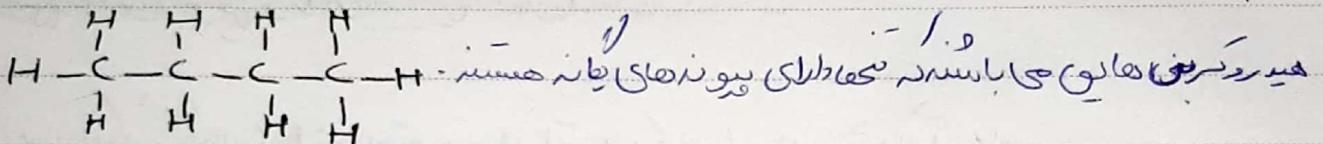 H H H H
هیدروکربن هایی می باشند که تنها دارای پیوندهای یگانه هستند. H – C – C – C – C – H
H H H H